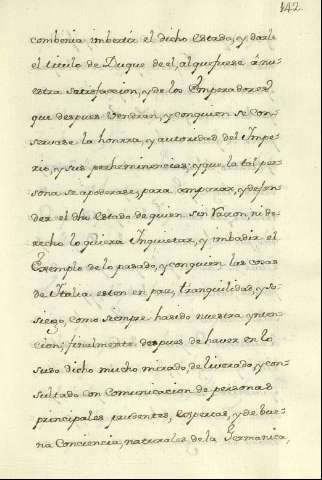 142
combenia imbertir el dicho Estado, y darle
el titulo de Duque de el, al que fuese á nu-
estra satisfacion, y de los Emperadores
que despues vendran, y con quien se con-
servase la honrra, y autoridad del Impe-
rio, y sus preheminencias; y que la tal per-
sona se apoderase, para amparar, y defen-
der el dho Estado de quien sin Razon, ni de-
recho lo quiera Inquietar, y imbadir el
Exemplo de lo pasado, y con quien las cosas
de Italia esten en paz, tranquilidad, y so-
siego, como siempre ha sido nuestra ynten-
cion; finalmente despues de haver en lo
suso dicho mucho mirado, deliverado, y con-
sultado con Comunicacion de personas
principales prudentes, Expertas, y de bue-
na Conciencia, naturales de la Germanica,